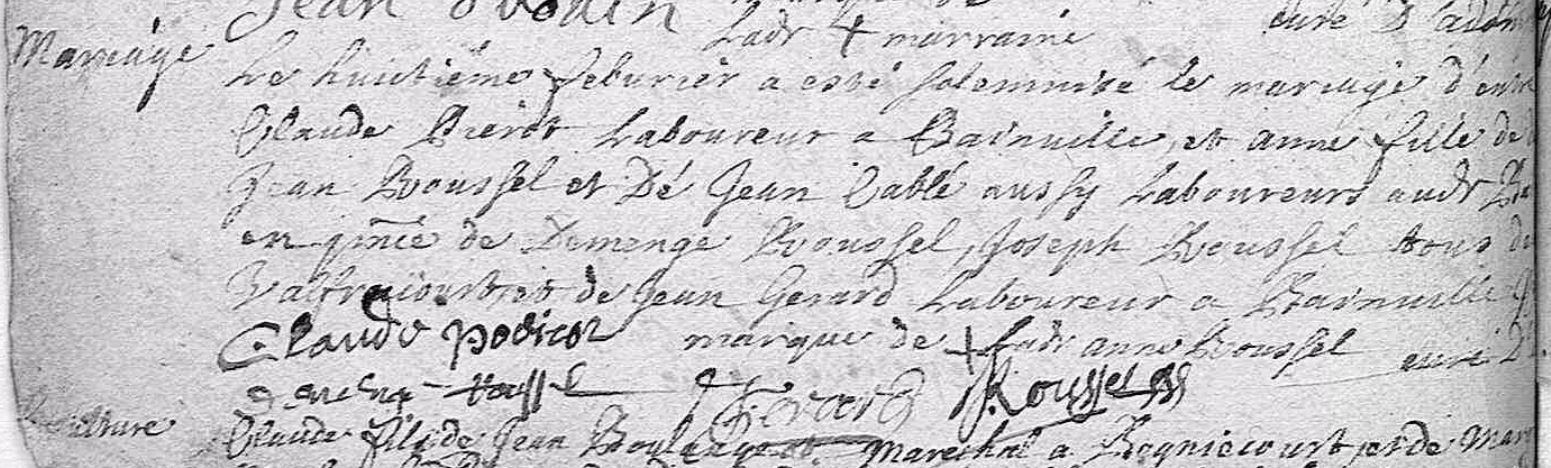 Jean
ladt + marraine curé D'adom
Mariage
Le huictiéme feburier a esté solemnisé le mariage d'entre
Claude Pierot Laboureur a Bainuille, et anne fille de
Jean Roussel et Dé Jean Cablé aussy Laboureurs audt
en pnce de Demenge Roussel, Joseph Roussel tous de
Valfraicourt, et de Jean Gerard Laboureur a Bainuille
Claude marque de + Ladt anne Roussel curé
demenge Roussel Gerard J Roussel
Claude fils de Jean Boulangeot Marechal a Regniecourt, et de